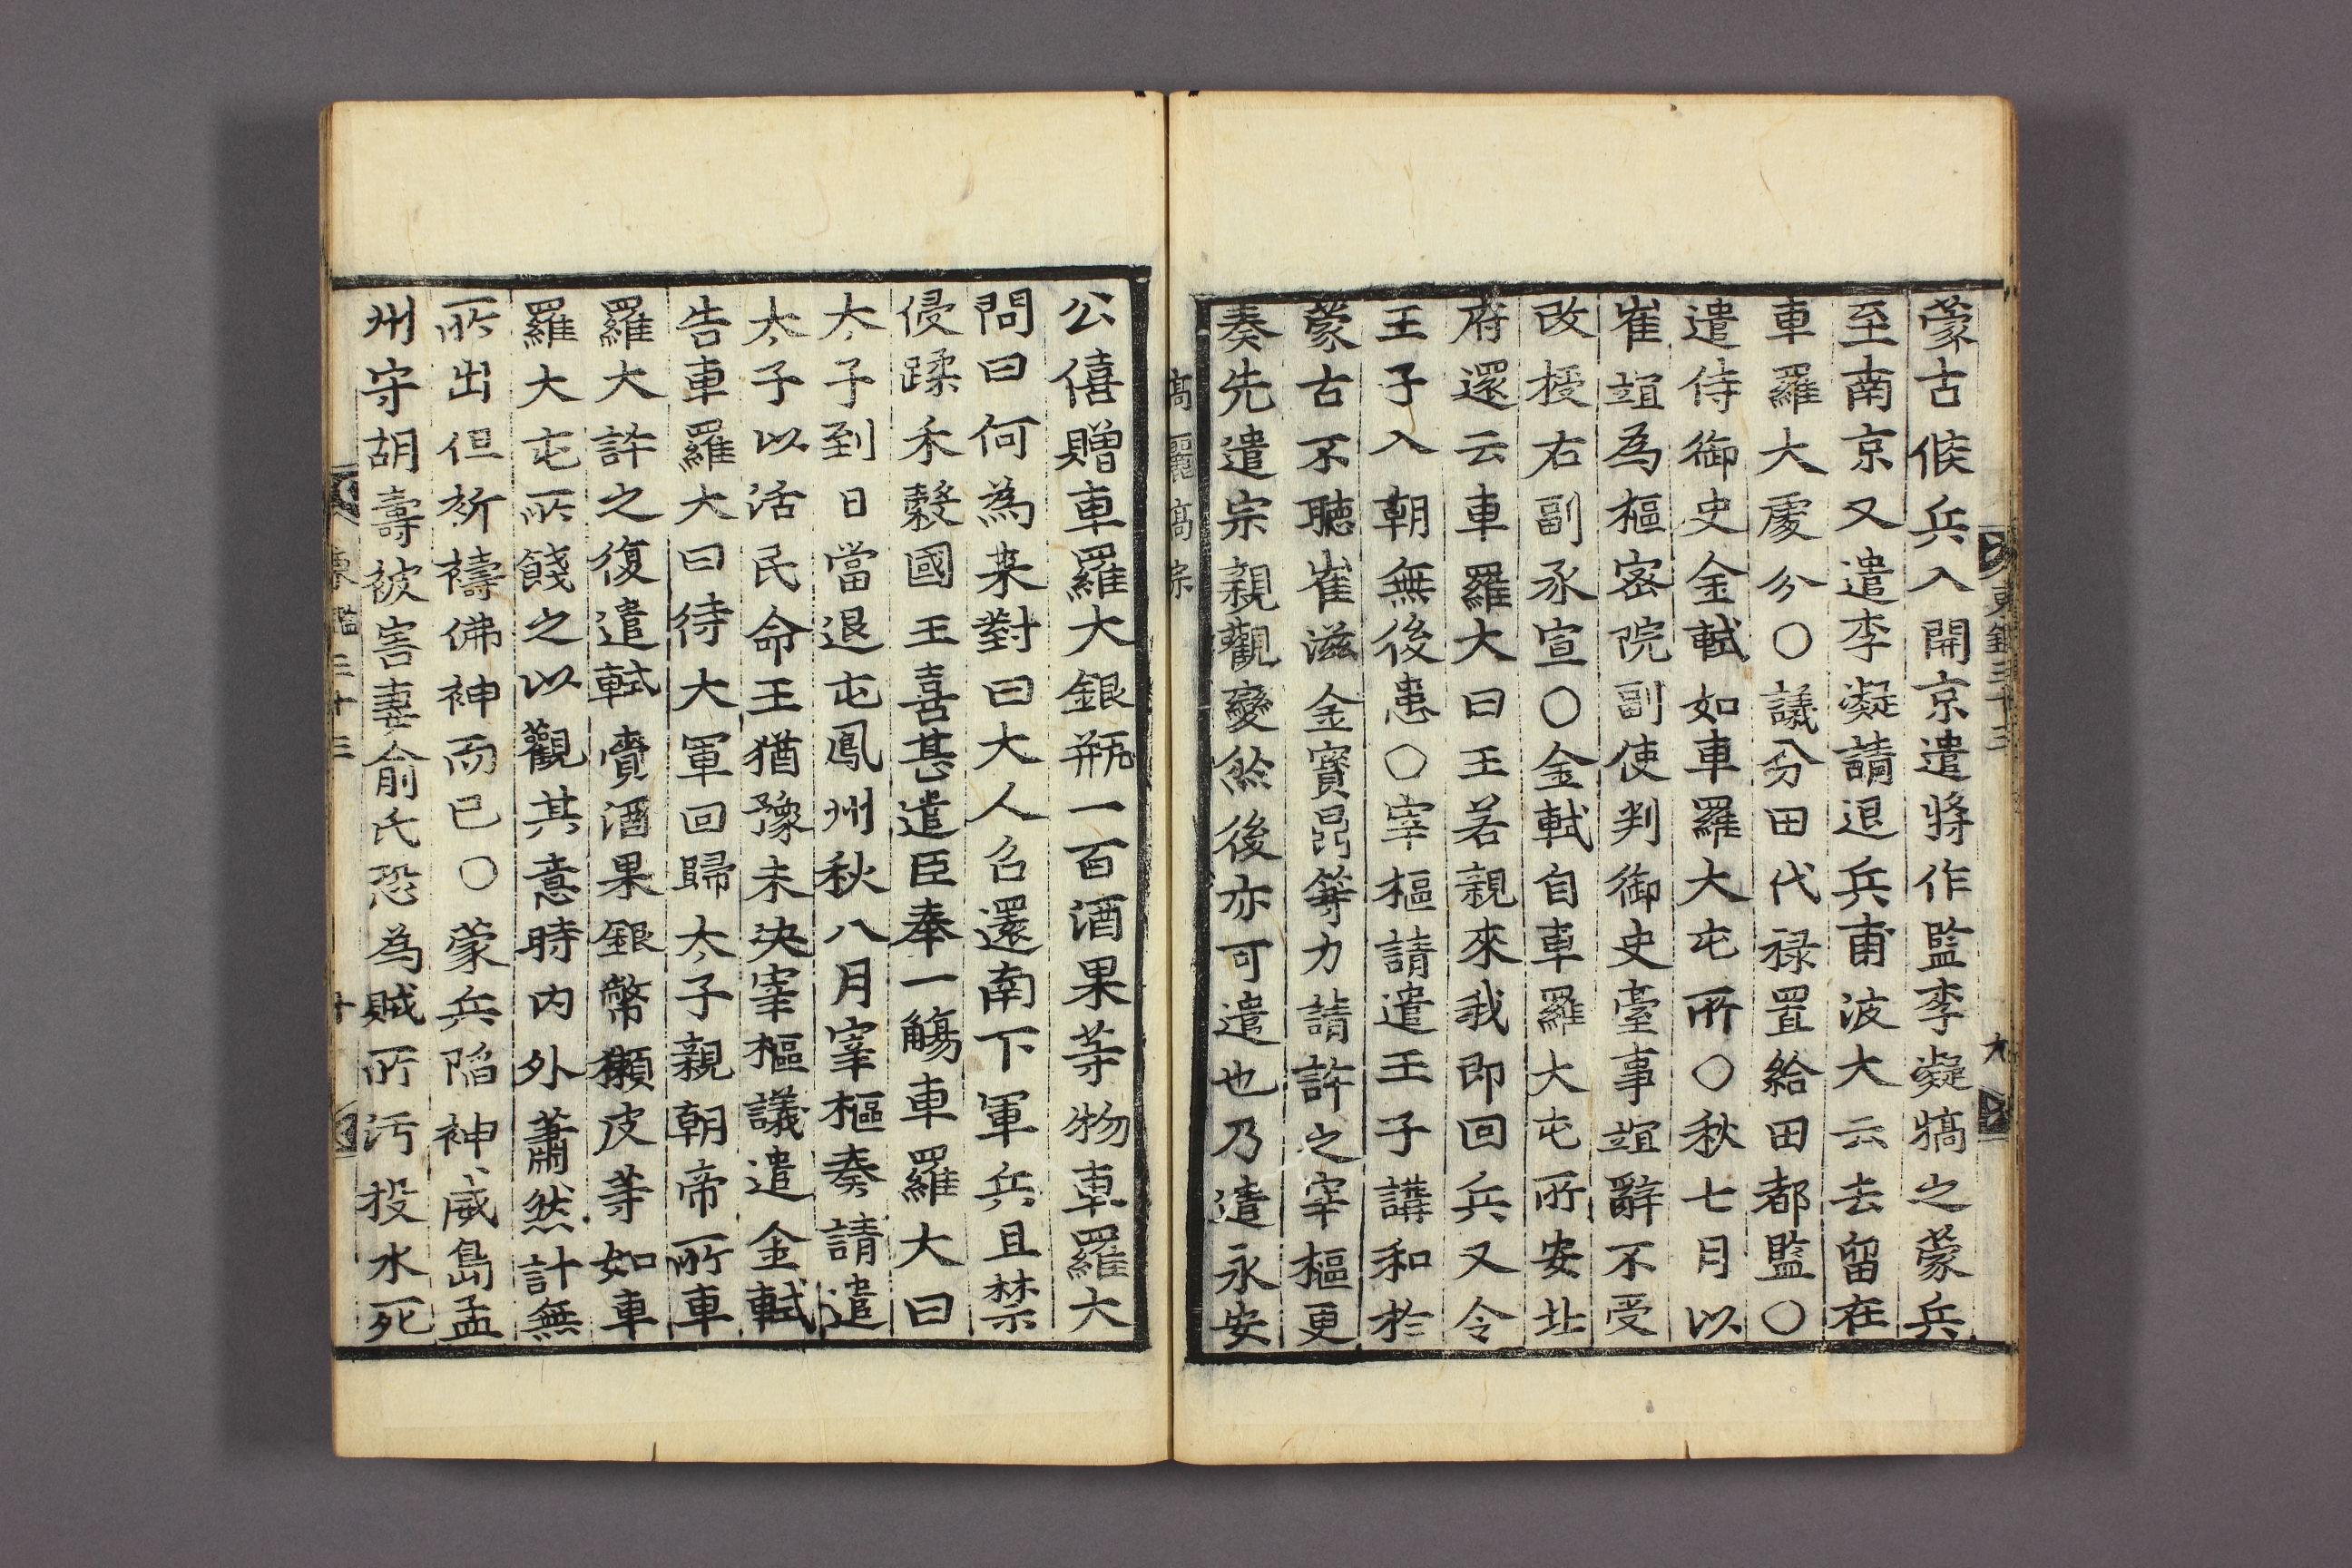 蒙古候兵入開京遣將作監李凝犒之蒙兵
至南京又遣李凝請退兵甫波大云去留在
車羅大處分○議分田代祿置給田都監○
遣侍御史金軾如車羅大屯所○秋七月以
崔竩為樞密院副使判御史臺事竩辭不受
改授右副承宣○金軾自車羅大屯所安北
府還云車羅大曰王若親來我即回兵又令
王子入朝無後患○宰樞請遣王子講和於
蒙古不聽崔滋金寶鼎等力請許之宰樞更
奏先遣宗親觀變然後亦可遣也乃遣永安
高麗高宗
公僖贈車羅大銀瓶一百酒果等物車羅大
問曰何為来對曰大人召還南下軍兵且禁
侵蹂禾穀國王喜甚遣臣奉一觴車羅大曰
太子到日當退屯鳳州秋八月宰樞奏請遣
太子以活民命王猶豫未決宰樞議遣金軾
告車羅大曰待大軍回歸太子親朝帝所車
羅大許之復遣軾賫酒果銀幣獺皮等如車
羅大屯所餞之以觀其意時內外蕭然計無
所出但祈禱佛神而已○蒙兵陷神威島孟
州守胡壽被害妻俞氏恐為賊所汚投水死